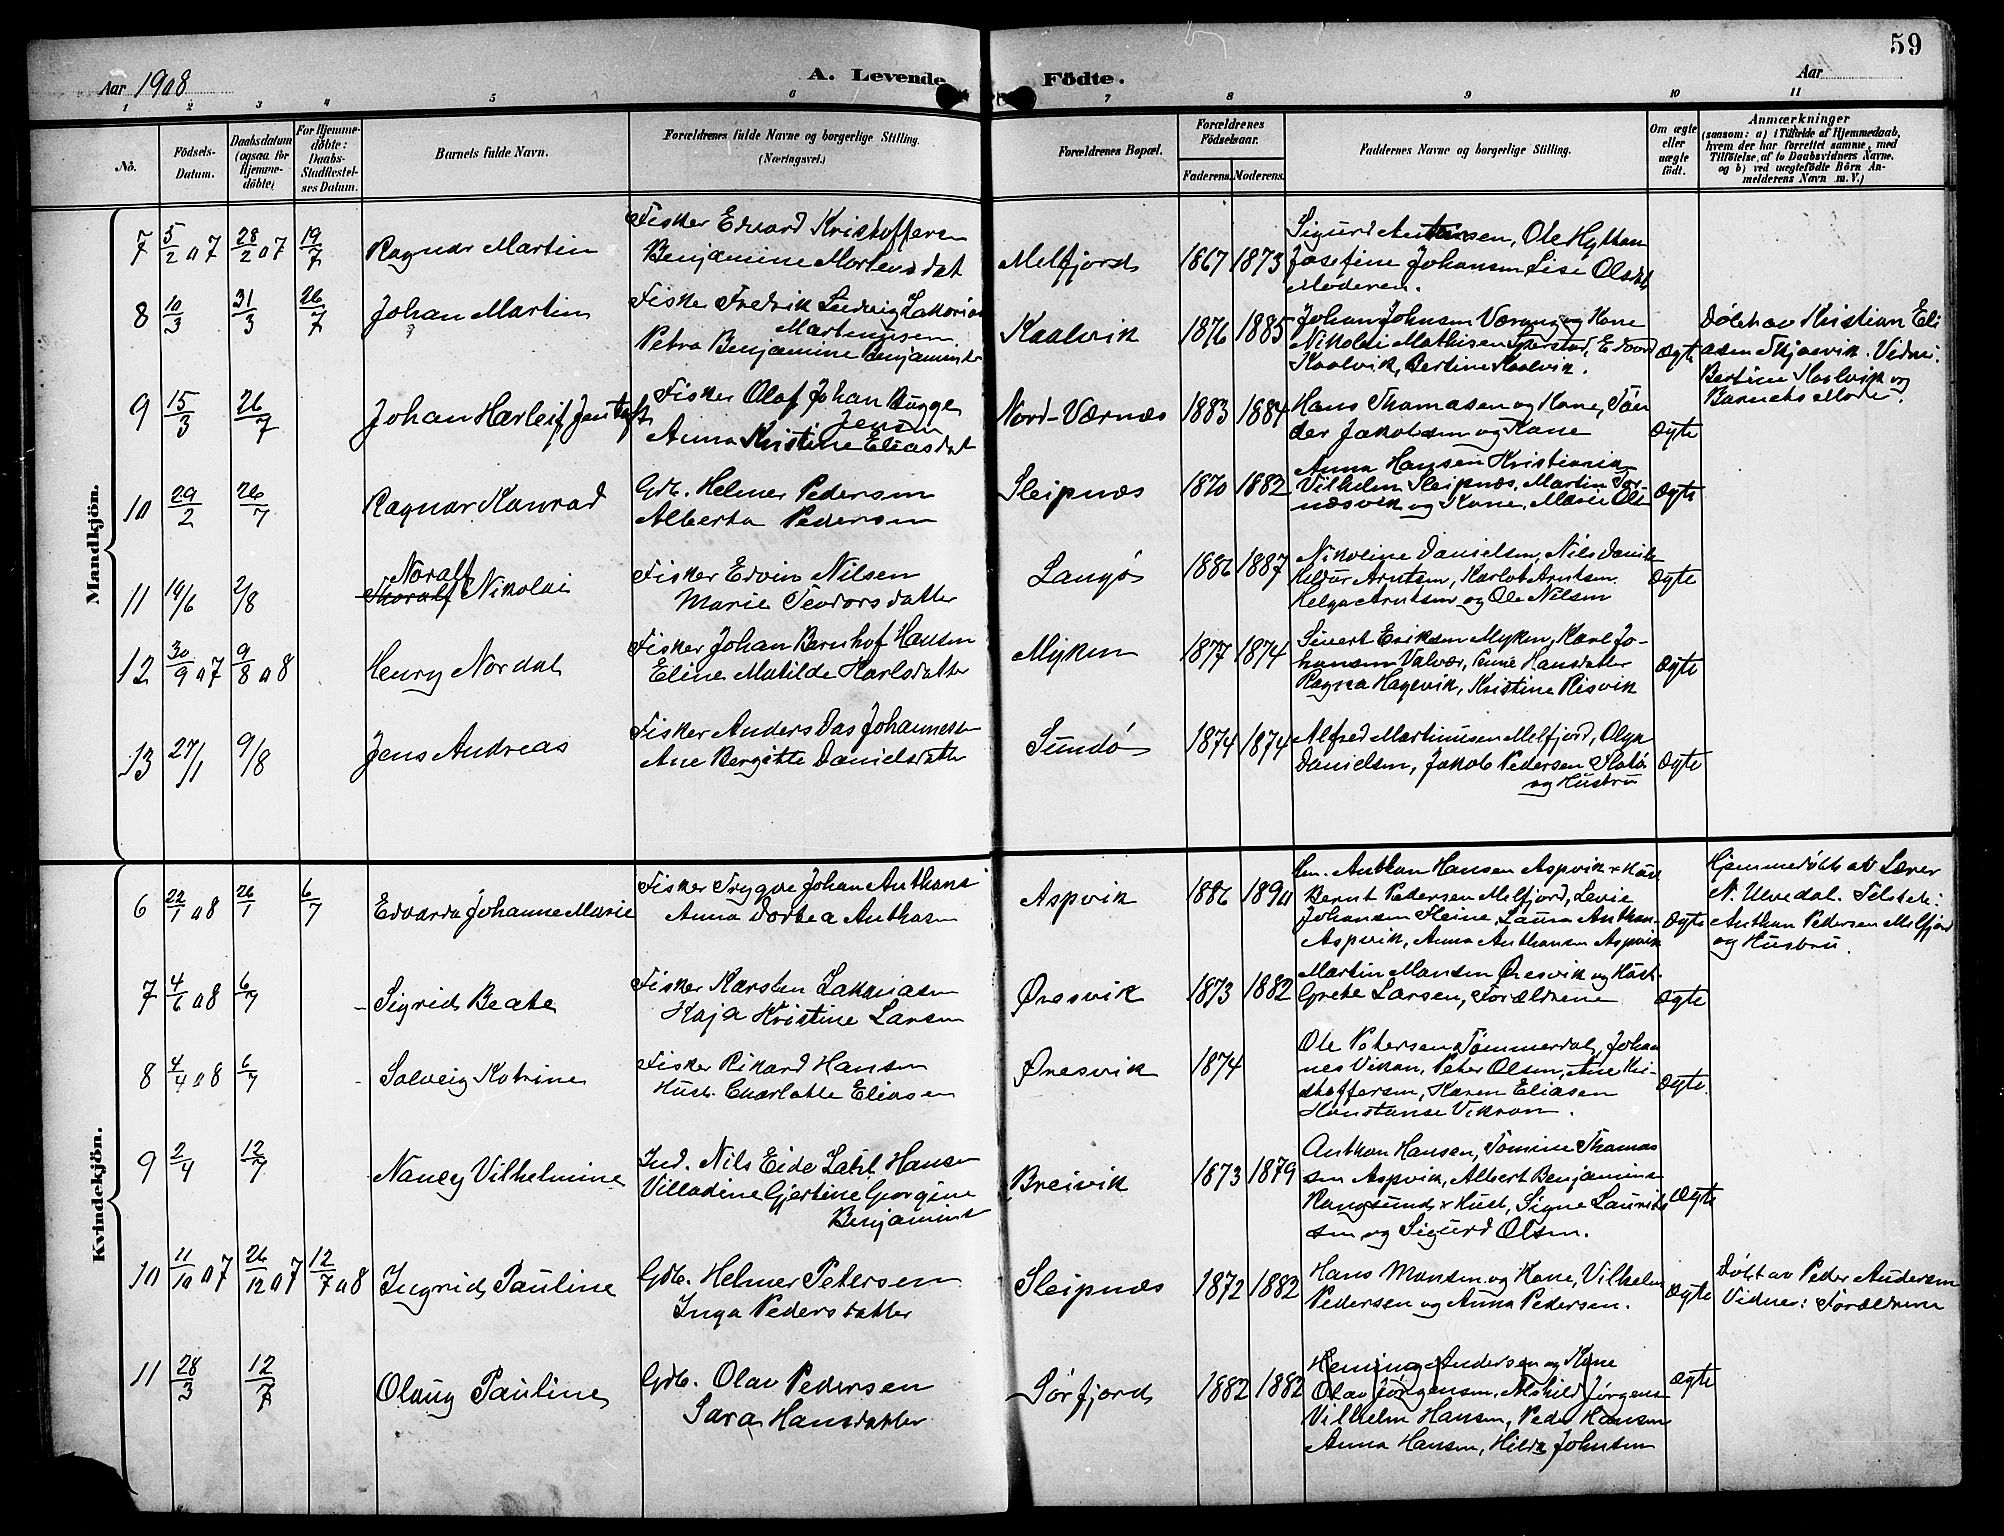 59
Aar 1908
A. Levende Födte.
Aar
1 2 3 4 5 6 7 8 9 10 11
No.
Födsels-Datum.
Daabsdatum (ogsaa for Hjemmedöbte)
For Hjemmedöbte: Daabs-Stadfæstelses Datum.
Barnets fulde Navn.
Forældrenes fulde Navne og borgerlige Stilling. (Næringsvei.)
Forældrenes Bopæl.
Forældrenes Födselsaar.
Faderens. Moderens.
Faddernes Navne og borgerlige Stilling.
Om ægte eller uægte födt.
Anmærkninger
(saasom: a) i Tilfælde af Hjemmedaab,
hvem der har forrettet samme, med
Tilföielse af to Daabsvidners Navne.
og b) ved uægtefödte Börn An-
melderens Navn m. V.)
Mandkjön.
7 5/2 07 28/2 07 19/7
Ragnar Martin
Fisker Edvard Kristoffersen
Benjamine Mortensdat
Melfjord
1867 1873
Sigurd Antonsen, Ole Hyttan
Josefine Johansen Lise Olsdt
Moderen.
8 10/3 31/3 26/7
Johan Martin
Fisker Fredrik Ludvig Zakarias
Martinussen
Petra Benjamine Benjaminsdt
Kaalvik
1876 1885
Johan Johnsen Værang og Kone
Nikolai Mathisen Edvard
Kaalvik, Bertine Kaalvik.
Ægte
Döbt av Kristian Eli
asen Skjaevik. Vidne:
Bertine Kaalvik og
Barnets Moder.
9 15/3 26/7
Johan Harleif Jentoft
Fisker Olaf Johan Bugge
Jensen
Anna Kristine Eliasdat
Nord-Værnæs
1883 1884
Hans Thomasen og Kone, Pe
der Jakobsen og Kone
Ægte
10 29/2 26/7
Ragnar Konrad
Gdb. Helmer Pedersen
Alberta Pedersen
Sleipnæs
1870 1882
Anna Hansen Kristiania
Vilhelm Sleipnæs, Martin Tor
næsvik og Kone. Marie Ols
Ægte
11 14/6 2/8
Noralf
Thoralf Nikolai
Fisker Edvin Nilsen
Marie Teodorsdatter
Langö
1886 1887
Nikoline Danielsen, Nils Daniels
Hildur Arntsen, Karlot Arntsen
Helga Arntsen og Ole Nilsen
Ægte
12 30/9 07 9/8 08
Henry Nordal
Fisker Johan Bernhof Hansen
Eline Matilde Karlsdatter
Myken
1877 1874
Sivert Eriksen Myken, Karl Jo-
hansen Valvær, Pernie Hansdatter
Ragna Hagevik, Kristine Risvik
Ægte
13 27/1 9/8
Jens Andreas
Fisker Anders Das Johannesen
Ane Bergitte Danielsdatter
Sundö
1874 1874
Alfred Martinusen Melfjord, Olga
Danielsen, Jakob Pedersen Flatö
og Hustru
Ægte
Kvindekjön.
6 22/1 08 26/1 6/7
Edvarda Johanne Marie
Fisker Trygve Johan Anthons
Anna Dortea Anthosen
Aspvik
1886 1890
Em. Anthon Hansen Aspvik + Hust
Bernt Pedersen Melfjord, Levie
Johansen Fleine, Laura Anthon
Aspvik, Anna Anthonsen Aspvik
Ægte
Hjemmedöbt af Lærer
N. Ulvedal. Tilstede:
Anthon Pedersen Melfjord
og Hustru.
7 4/6 08 6/7
Sigrid Beate
Fisker Karsten Zakariasen
Kaja Kristine Larsen
Öresvik
1873 1882
Martin Monsen Öresvik og Hust
Grete Larsen, Forældrene
Ægte
8 4/4 08 6/7
Solveig Katrine
Fisker Rikard Hansen
Hust. Charlotte Eliasen
Öresvik
1874
Ole Petersen Tömmerdal, Johan
nes Vikran, Peter Olsen, Ane Kri-
stoffersen, Karen Eliasen
Konstanse Vikran.
Ægte
9 2/4 12/7
Nancy Vilhelmine
Ind. Nils Eide Zahl Hansen
Villadine Gjertine Georgine
Benjamins
Breivik
1873 1879
Anthon Hansen, Tomine Thomas
sen Aspvik, Albert Benjamins
Rangsund + Hust, Signe Laurits
sen og Sigurd Olsen.
Ægte
10 11/10 07 26/12 07 12/7 08
Ingrid Pauline
Gdb. Helmer Petersen
Inga Pedersdatter
Sleipnæs
1872 1882
Hans Monsen og Kone, Vilhelm
Pedersen og Anna Pedersen.
Ægte
Döbt av Peder Andersen
Vidner: Forældrene
11 28/3 12/7
Olaug Pauline
Gdb. Olav Pedersen
Sara Hansdatter
Sörfjord
1882 1882
Heming Andersen og Kone
Olav Jörgensen, Alshild Jörgens
Vilhelm Hansen, Peder Hansen
Anna Hansen, Hilda Johnsen
Ægte